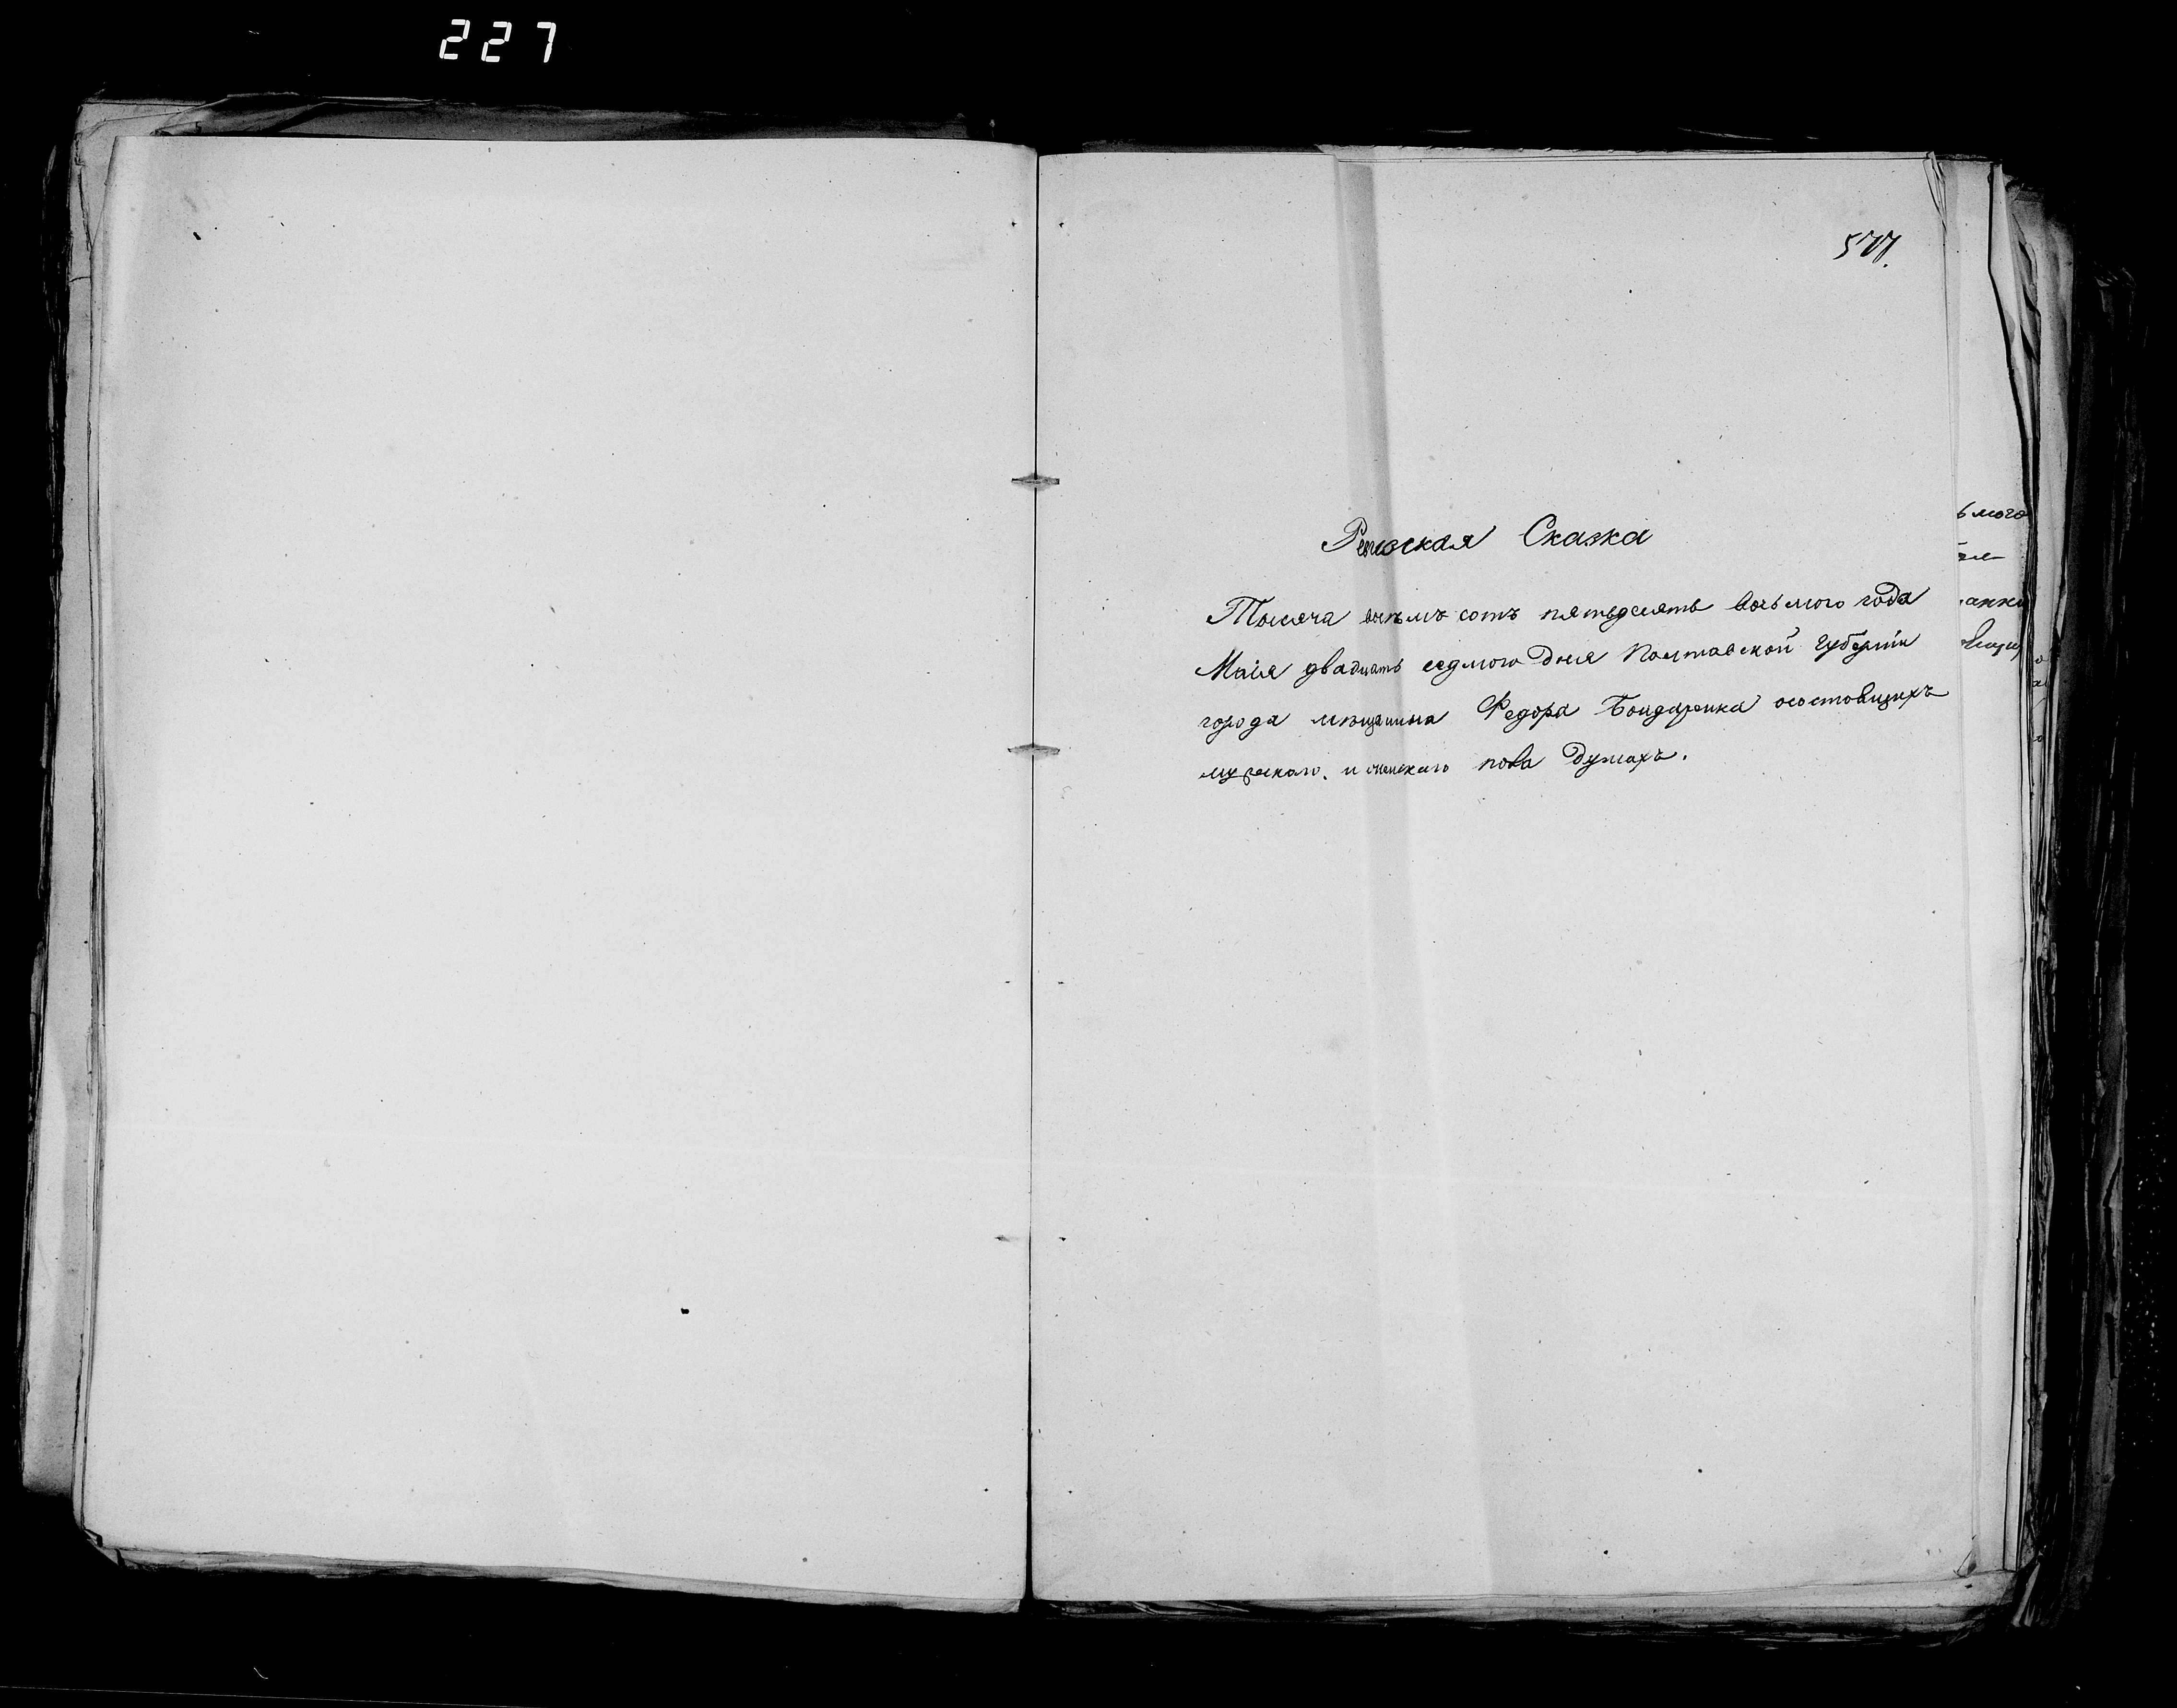 227
577.
Ревизская Сказка
Тысяча восемъ сотъ пятьдесятъ восьмого года
Маія двадцать седмого дня Полтавской губерніи
города мещанина Федора Бондаренка осостоящихъ
мужескаго, и женскаго пола душахъ.
ьмого